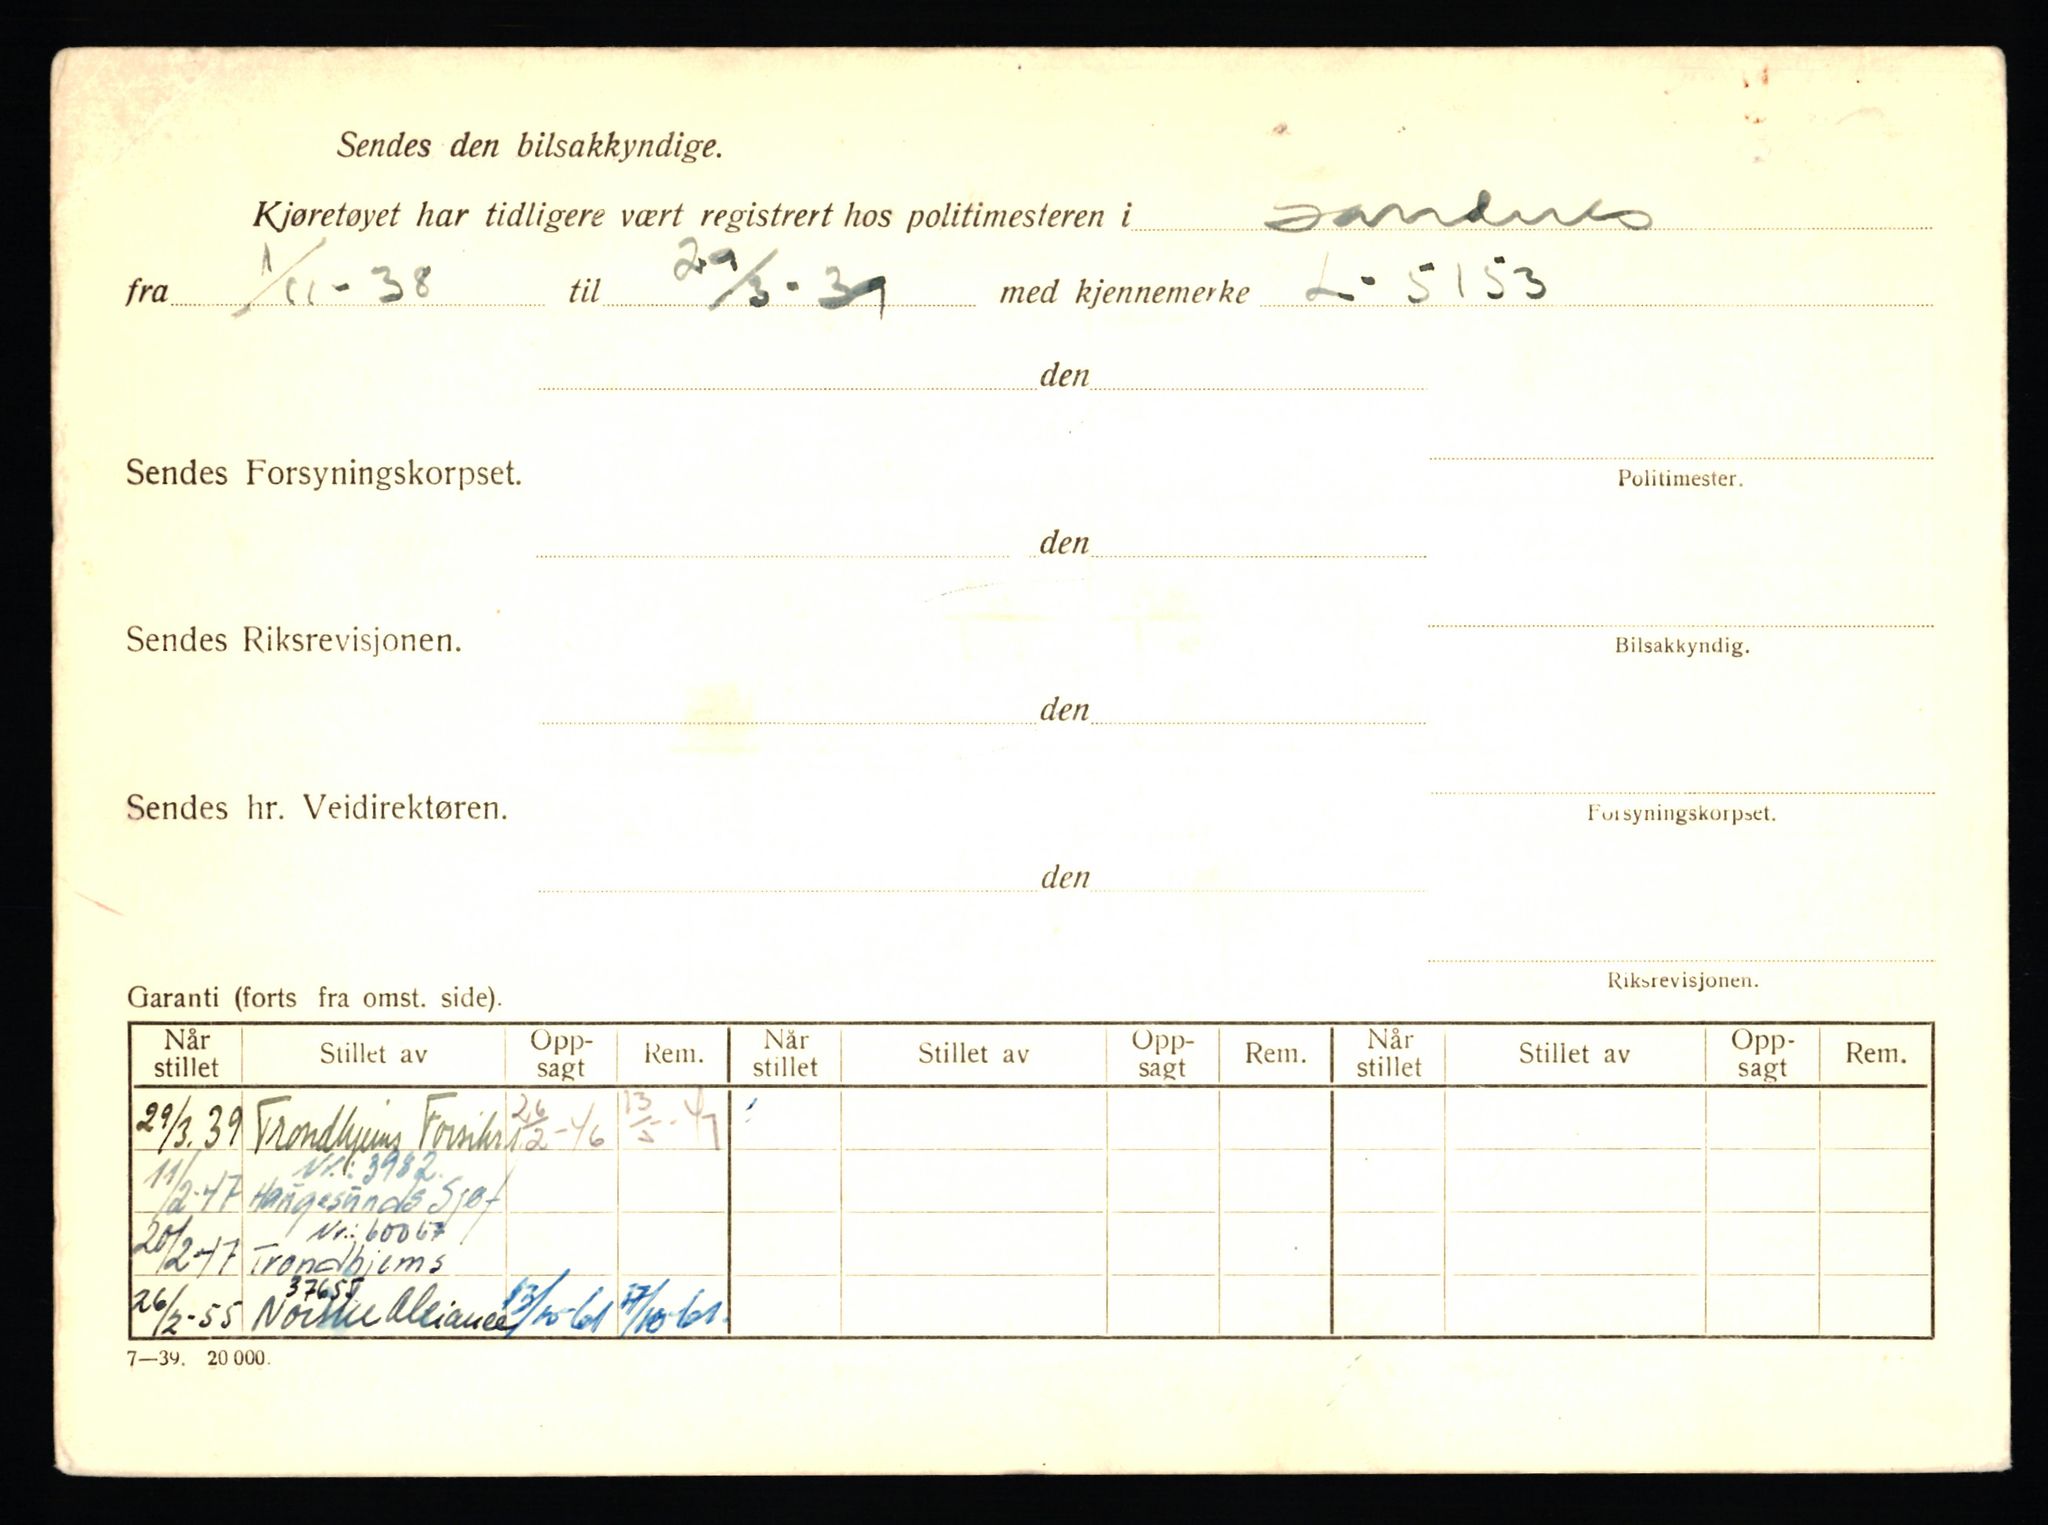 Sendes den bilsakkyndige.
Kjøretøyet har tidligere vært registrert hos politimesteren i Sandnes
fra 1/11-38 til 29/3-39 med kjennemerke L-5153
den
Sendes Forsyningskorpset.
Politimester.
den
Sendes Riksrevisjonen.
Bilsakkyndig.
den
Sendes hr. Veidirektøren.
Forsyningskorpset.
den
Riksrevisjonen.
Garanti (forts fra omst. side).
Når stillet Stillet av Opp-sagt Rem. Når stillet Stillet av Opp-sagt Rem. Når stillet Stillet av Opp-sagt Rem.
29/3.39 Trondhjems Forsikr. 26/2-46 13/5-47
Nr.: 3982.
11/2-47 Haugesunds Sjøf
Nr.: 60067
20/2-47 Trondhjems
37655
26/2-55 Norske Alliance 17/10-61.
7—39. 20 000.